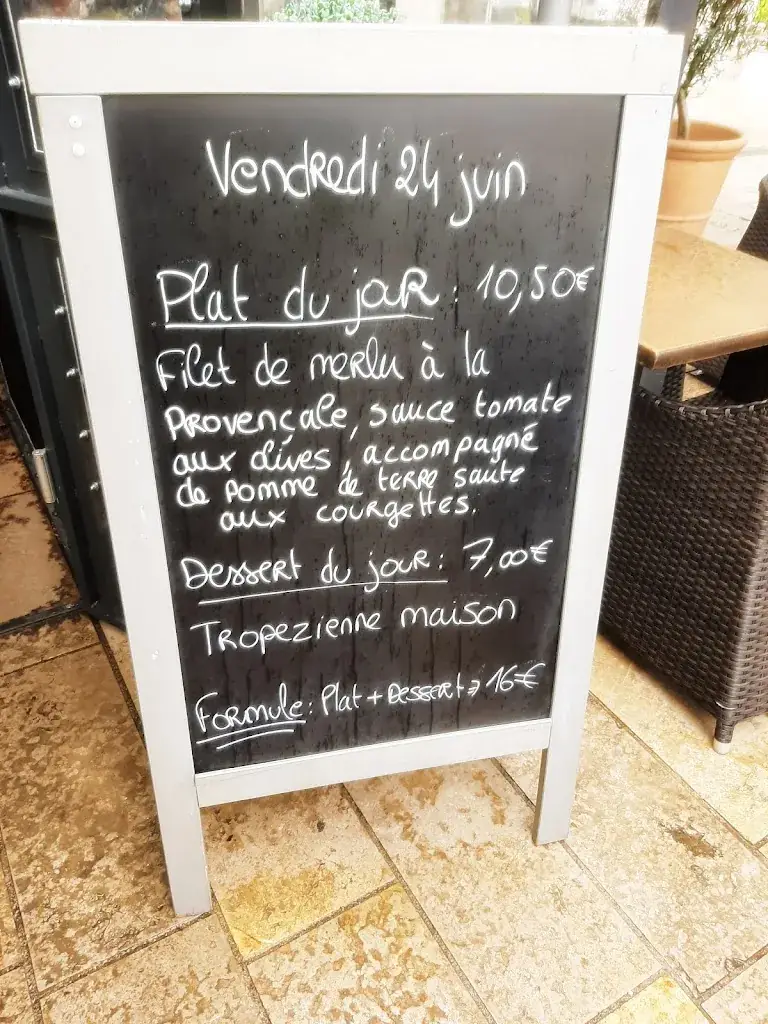 Vendredi 24 juin
Plat du jour : 10,50€
Filet de merlu à la
Provençale, sauce tomate
aux olives, accompagné
de pomme de terre saute
aux courgettes.
Dessert du jour : 7,00€
Tropezienne maison
Formule : Plat + Dessert → 16€